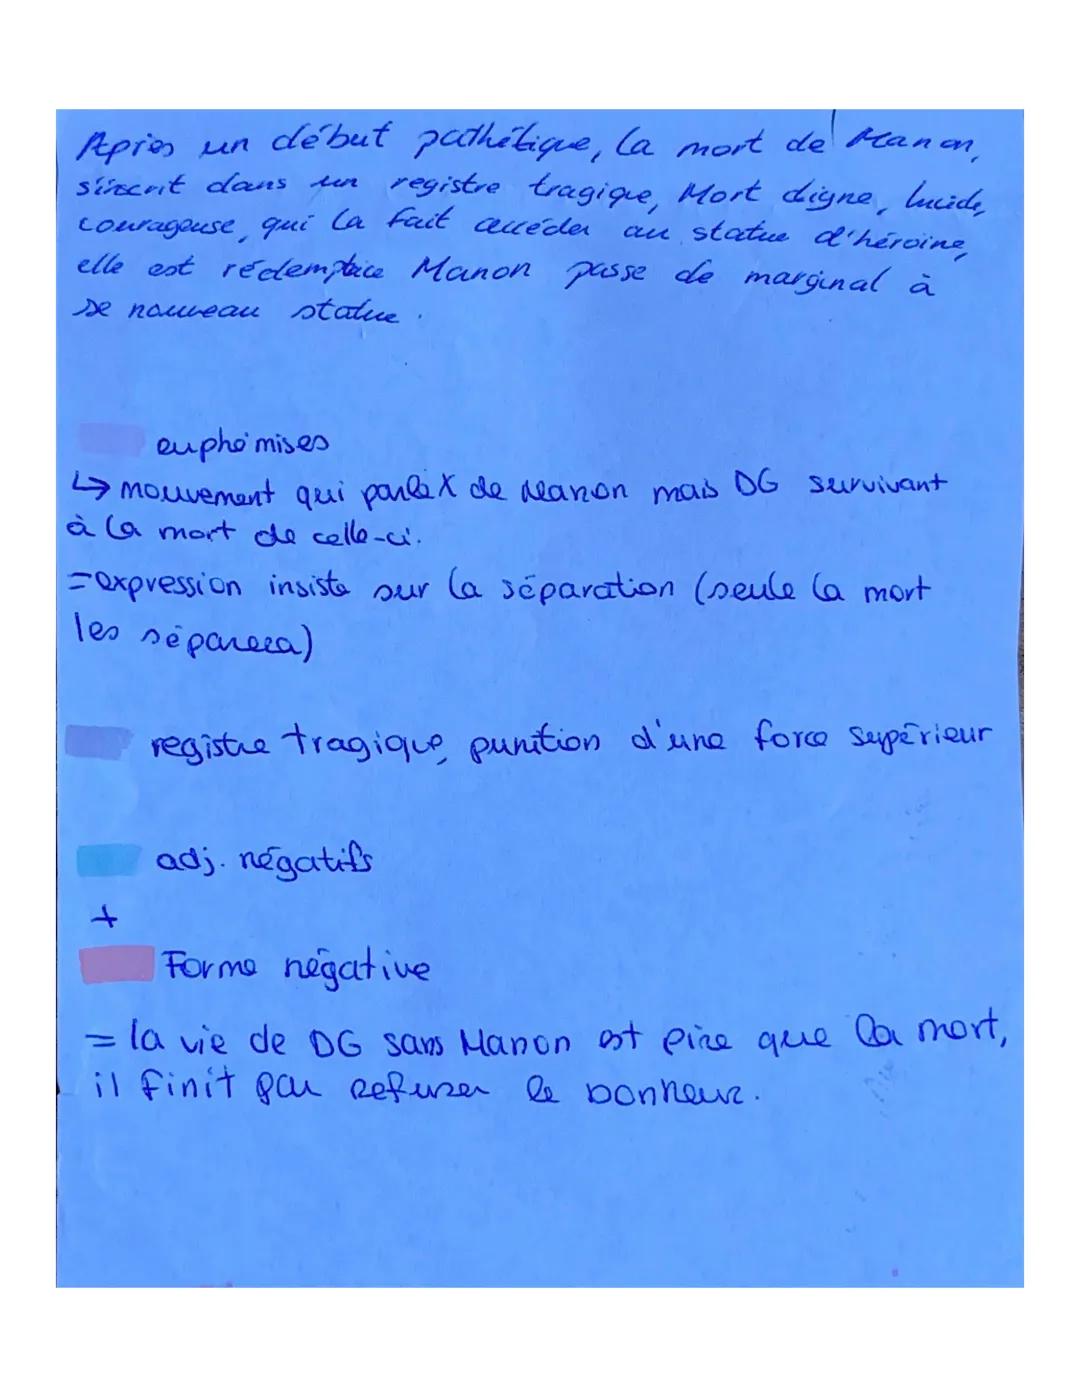 Après un début pathétique, la mort de Manon,
s'inscrit dans un registre tragique, Mort digne, lucide,
courageuse, qui la fait accéder au statue d'héroïne,
elle est rédemptrice Manon passe de marginal à
se nouveau statue.
euphémises
↳ mouvement qui parle X de Manon mais DG survivant
à la mort de celle-ci.
= expression insiste sur la séparation (seule la mort
les séparera)
registre tragique, punition d'une force supérieur
adj. négatifs
+
Forme négative
= la vie de DG sans Manon est pire que la mort,
il finit par refuser le bonheur.